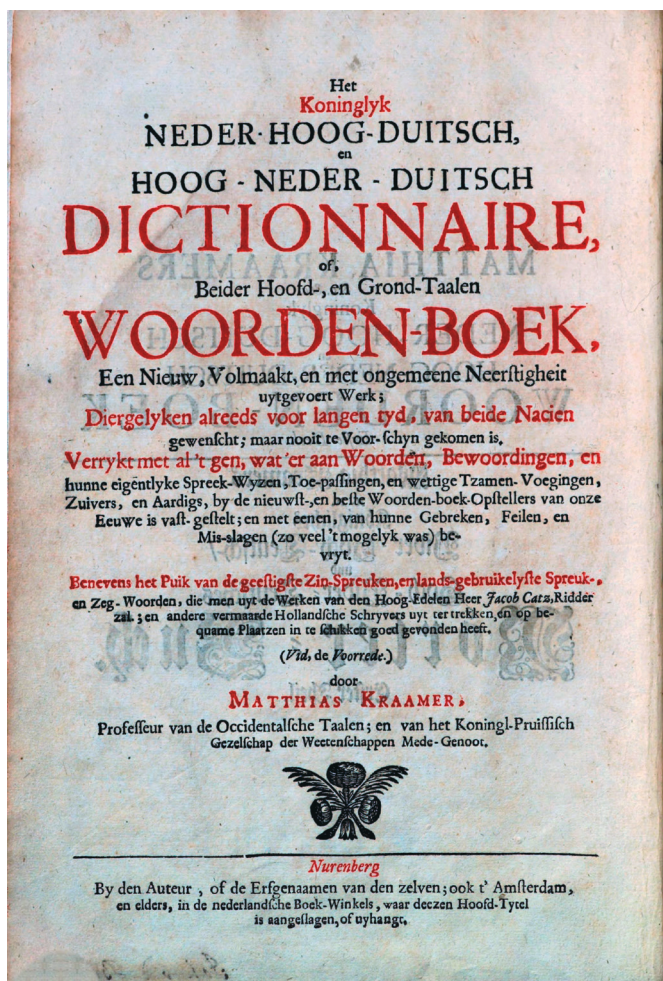 Het
Koninglyk
NEDER-HOOG-DUITSCH,
en
HOOG - NEDER - DUITSCH
DICTIONNAIRE,
of,
Beider Hoofd-, en Grond-Taalen
WOORDEN-BOEK,
Een Nieuw, Volmaakt, en met ongemeene Neerſtigheit
uytgevoert Werk;
Diergelyken alreeds voor langen tyd, van beide Nacien
gewenſcht; maar nooit te Voor-ſchyn gekomen is,
Verrykt met al 't gen, wat 'er aan Woorden, Bewoordingen, en
hunne eigentlyke Spreek-Wyzen, Toe-paſſingen, en wettige Tzamen-Voegingen,
Zuivers, en Aardigs, by de nieuwſt-, en beſte Woorden-boek-Opſtellers van onze
Eeuwe is vaſt-geſtelt; en met eenen, van hunne Gebreken, Feilen, en
Mis-slagen (zo veel 't mogelyk was) be-
vryt.
Benevens het Puik van de geeſtigſte Zin-Spreuken, en lands-gebruikelyſte Spreuk-,
en Zeg-Woorden, die men uyt de Werken van den Hoog-Edelen Heer Jacob Catz, Ridder
zal.; en andere vermaarde Hollandſche Schryvers uyt ter trekken, en op be-
quame Plaatzen in te ſchikken goed gevonden heeft.
(Vid, de Voorrede.)
door
MATTHIAS KRAAMER,
Profeſſeur van de Occidentalſche Taalen; en van het Koningl-Pruiſſiſch
Gezelſchap der Weetenſchappen Mede-Genoot.
Nurenberg
By den Auteur, of de Erfgenaamen van den zelven; ook t' Amſterdam,
en elders, in de nederlandſche Boek-Winkels, waar deezen Hoofd-Tytel
is aangeſlagen, of uyhangt.